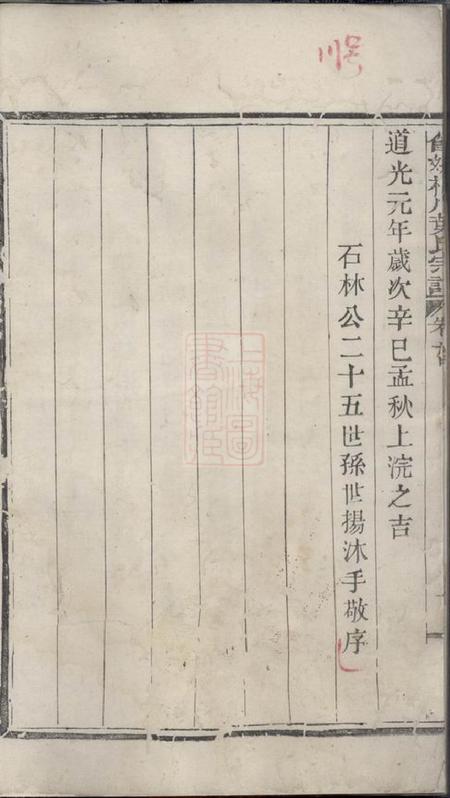 道光元年歲次辛巳孟秋上浣之吉
石林公二十五世孫世揚沐手敬序
上海圖
書館藏
葉氏宗譜
卷首